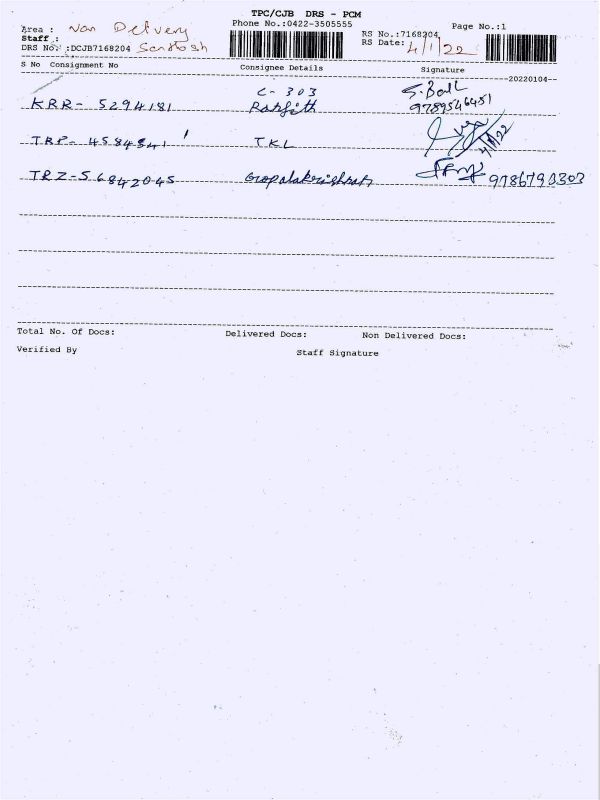 TPC/CJB DRS - PCM
Phone No.:0422-3505555
Page No.:1
Area : Van Delvery
Staff : Santosh
DRS No. :DCJB7168204
RS No.:7168204
RS Date: 4/1/22
S No Consignment No Consignee Details Signature
20220104
C-303
KRR- 5294181 Ranjith
9789546451
TRP- 4584841 TKL
4/1/22
TRZ-56842045 Gopalakrishnan 9786790303
Total No. Of Docs: Delivered Docs: Non Delivered Docs:
Verified By Staff Signature